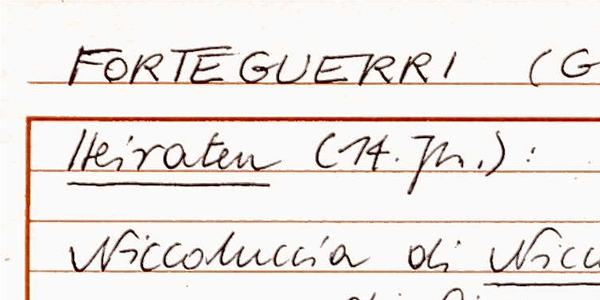 FORTEGUERRI (G
Heiraten (14. Jh.):
Niccoluccia di Nicc
di